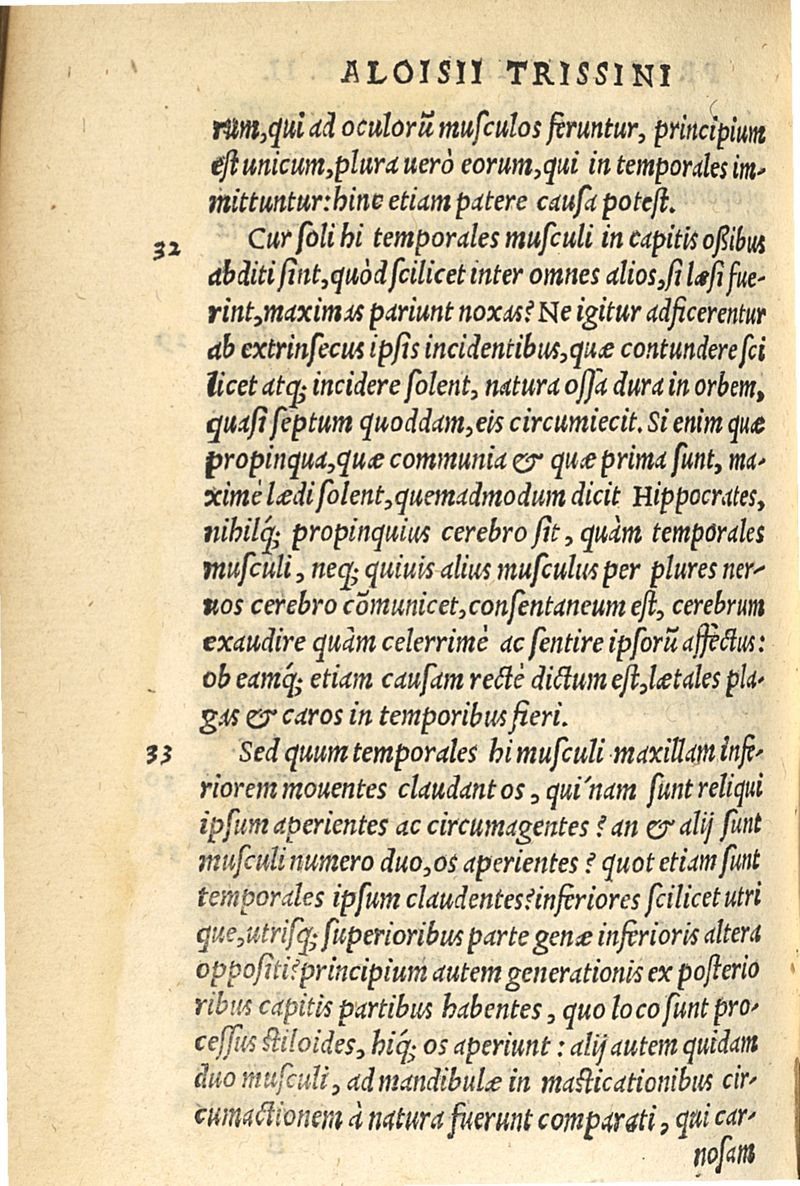 ALOISII TRISSINI
rum,qui ad oculorũ musculos feruntur, principium
est unicum,plura uerò eorum,qui in temporales im-
mittuntur:hinc etiam patere causa potest.
32 Cur soli hi temporales musculi in capitis oßibus
abditi sint,quòd scilicet inter omnes alios,si læsi fue-
rint,maximas pariunt noxas? Ne igitur adficerentur
ab extrinsecus ipsis incidentibus,quæ contundere sci
licet atq; incidere solent, natura ossa dura in orbem,
quasi septum quoddam,eis circumiecit. Si enim quæ
propinqua,quæ communia & quæ prima sunt, ma-
ximè lædi solent,quemadmodum dicit Hippocrates,
nihilq́; propinquius cerebro sit, quàm temporales
musculi, neq; quiuis alius musculus per plures ner-
uos cerebro cõmunicet,consentaneum est, cerebrum
exaudire quàm celerrimè ac sentire ipsorũ affectus:
ob eamq́; etiam causam rectè dictum est,lætales pla-
gas & caros in temporibus fieri.
33 Sed quum temporales hi musculi maxillam infe-
riorem mouentes claudant os, qui'nam sunt reliqui
ipsum aperientes ac circumagentes? an & alij sunt
musculi numero duo,os aperientes? quot etiam sunt
temporales ipsum claudentes?inferiores scilicet utri
que,utrisq; superioribus parte genæ inferioris altera
oppositi?principium autem generationis ex posterio
ribus capitis partibus habentes, quo loco sunt pro-
cessus stiloides, hiq́; os aperiunt: alij autem quidam
duo musculi, ad mandibulæ in masticationibus cir-
cumactionem à natura fuerunt comparati, qui car-
nosam